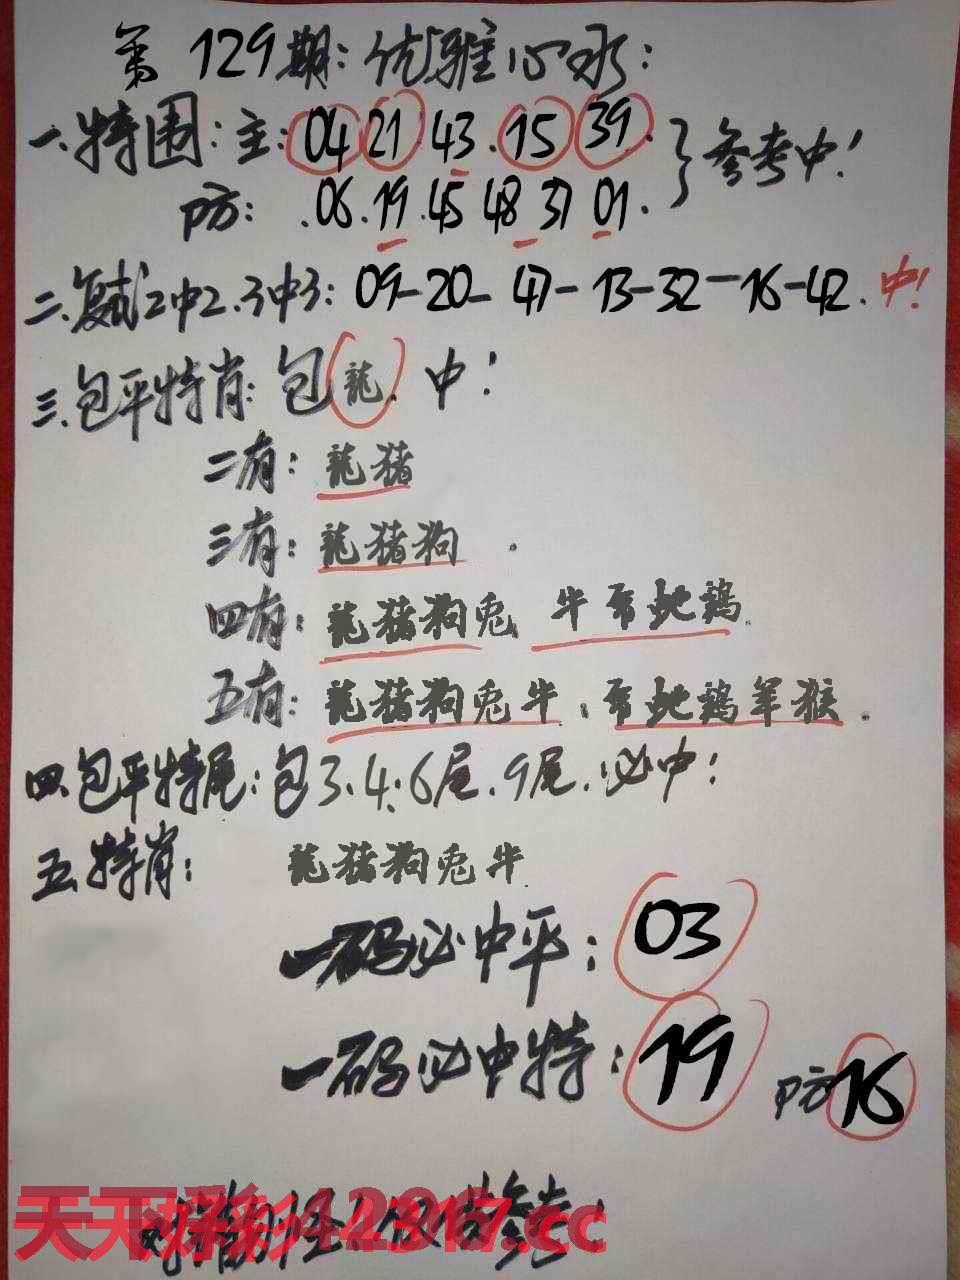 第129期:优雅心水:
一.特围:主:04 21 43.15 39.
}参考中!
防:.06.19.45 48 37 01.
二.复式2中2.3中3:09-20-47-13-32-16-42.中!
三.包平特肖:包龍.中!
二有:龍猪
三有:龍猪狗.
四有:龍猪狗兎 牛马蛇鷄
五有:龍猪狗兎牛.马蛇鷄羊猴.
四.包平特尾:包3.4.6尾.9尾.必中!
五.特肖:龍猪狗兎牛
一码必中平:03
一码必中特:19 防16
天下彩-12317.cc